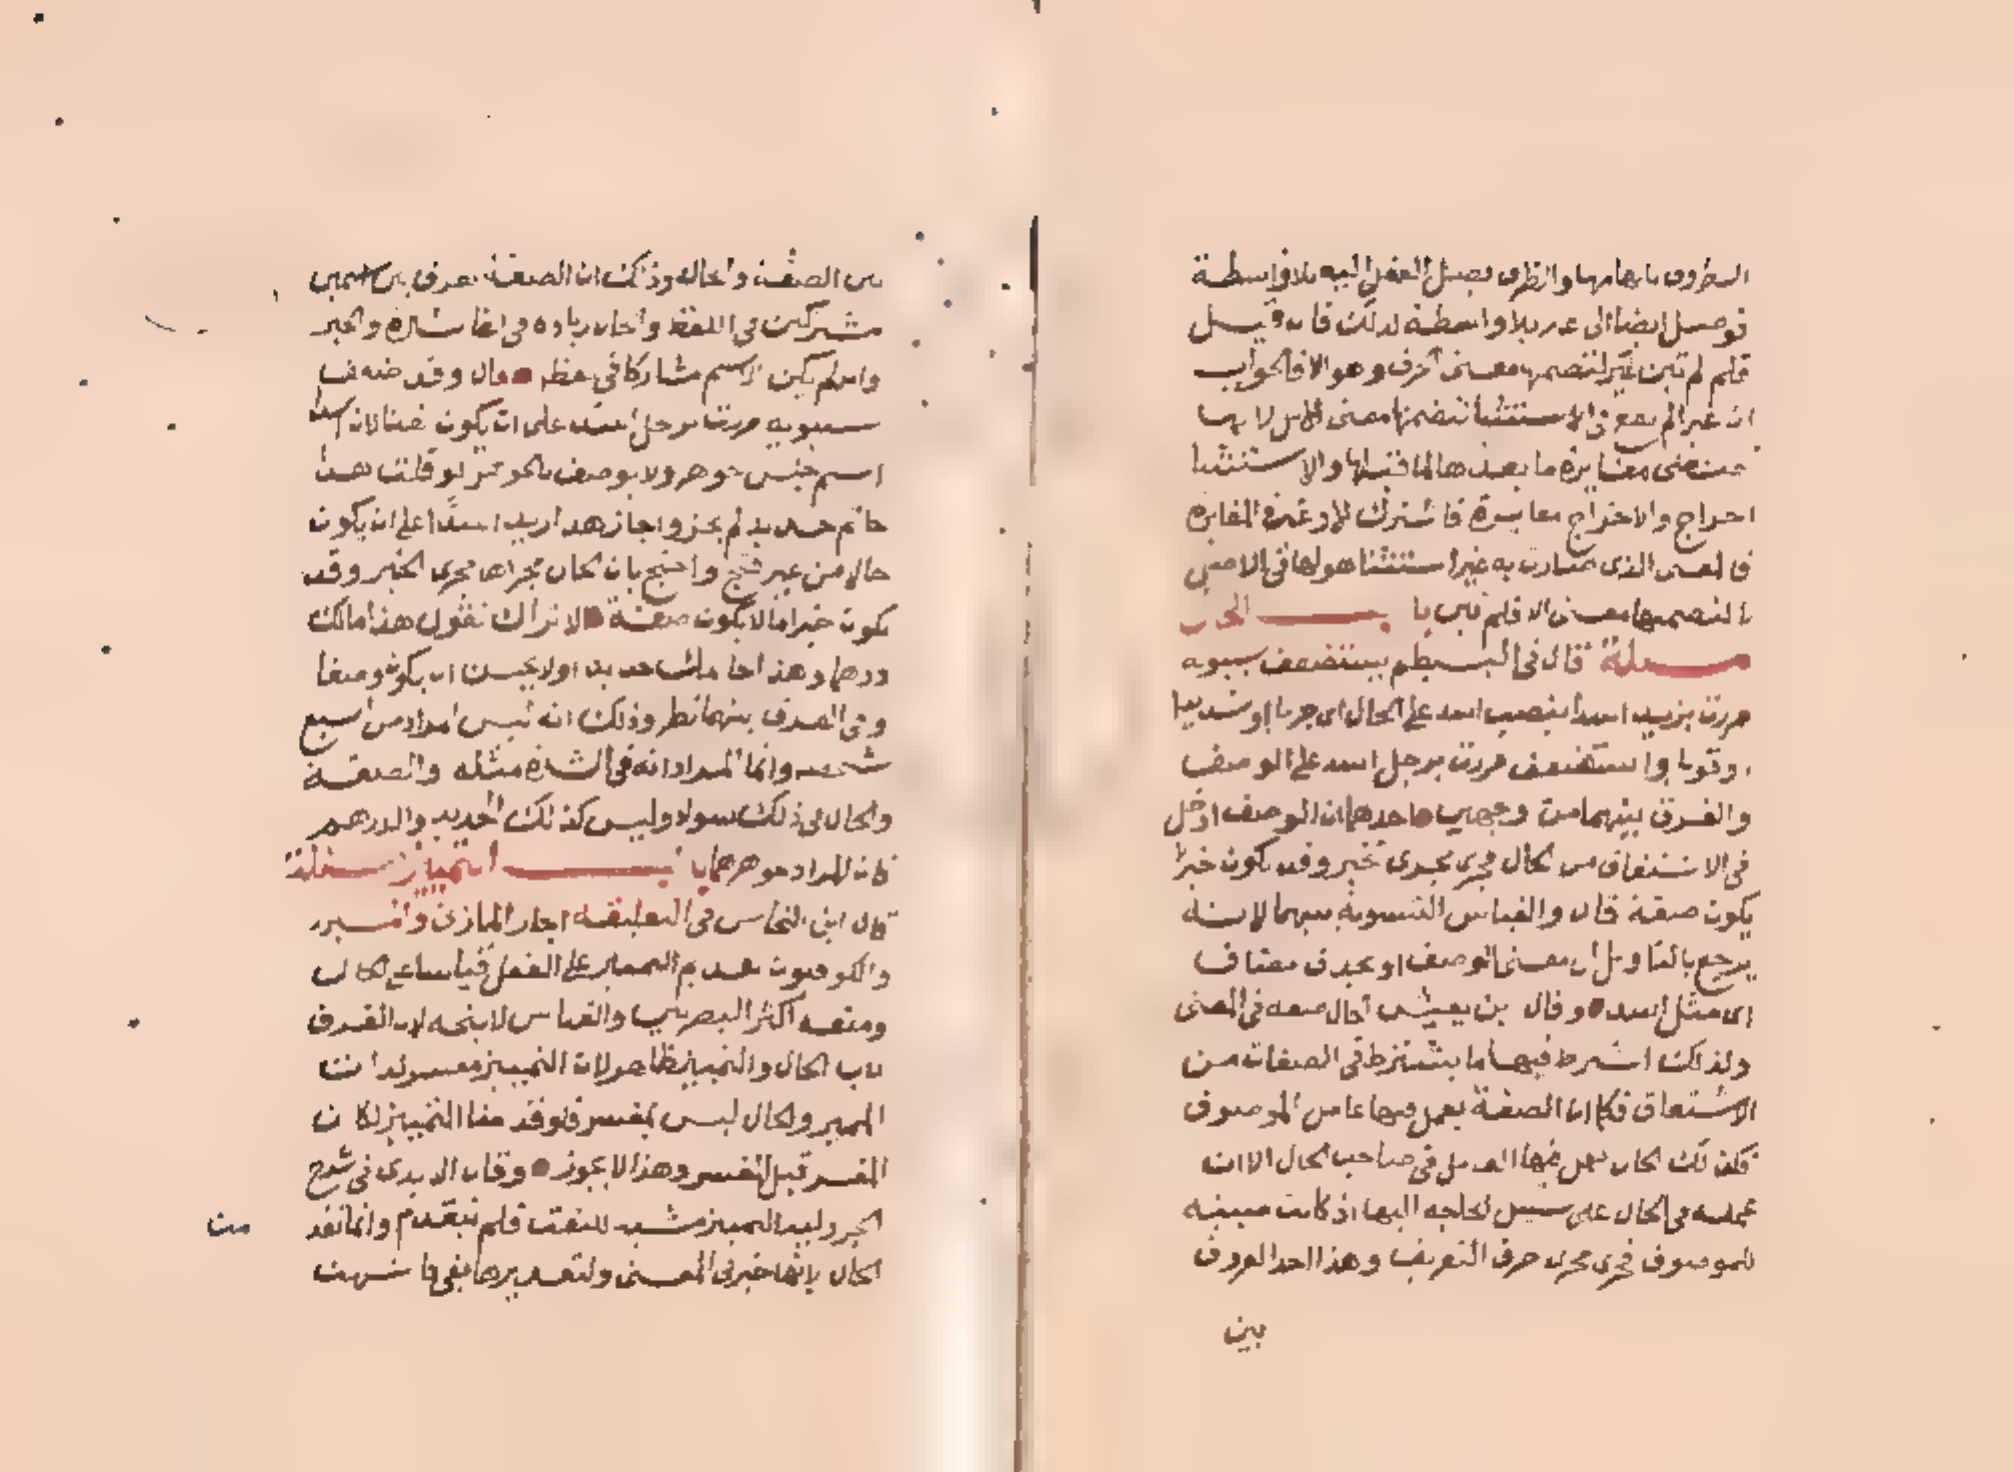 الظروف بابهامها والظرف يصل الفعل اليه بلا واسطة
فوصل ايضا الى غير بلا واسطة لذلك فان قيل
فلم لم تبن غير لتضمنها معنى الحرف وهو الا فالجواب
ان غير الم تقع في الاستثنا لتضمنها معنى الا بل لا نها
تقتضى مغايرة ما بعدها لما قبلها والاستثنا
اخراج والاخراج مغايرة فاشترك الا وغير في المغايرة
فالمعنى الذي صارت به غير استثنا هو لها في الاصل
لا لتضمنها معنى الا فلم تبن باب الحال
مسئلة قال في البسيط يستضعف سيبويه
مررت بزيد اسدا بنصب اسد على الحال اي جريا او شديدا
او قويا واستضعف مررت برجل اسد على الوصف
والفرق بينهما من وجهين احدهما ان الوصف ادخل
في الاشتقاق من الحال فجرى مجرى الخبر وقد يكون خبرا
يكون صفة قال والقياس التسوية بينهما لانه
يرجع بالتاويل الى معنى الوصف او بحذف مضاف
اي مثل اسد وقال بن يعيش الحال صفة في المعنى
ولذلك اشترط فيها ما يشترط في الصفات من
الاشتقاق فكما ان الصفة يعمل فيها عامل الموصوف
فكذلك الحال يعمل فيها العامل في صاحب الحال الا ان
عمله في الحال على سبيل الحاجة اليها اذ كانت مبينة
للموصوف فجرى مجرى حرف التعريف وهذا احد الفروق
بين
بين الصفة والحال وذلك ان الصفة تفرق بين اسمين
مشتركين في اللفظ والحال زيادة في الفائدة والخبر
وان لم يكن الاسم مشاركا في لفظه وقال وقد ضعف
سيبويه مررت برجل اسد على ان يكون نعتا لان اسدا
اسم جنس جوهر ولا يوصف بالجوهر لو قلت هذا
خاتم حديد لم يجز واجاز هذا زيد اسدا على ان يكون
حالا من غير قبح واحتج بان الحال مجراها مجرى الخبر وقد
يكون خبرا ما لا يكون صفة الا تراك تقول هذا مالك
درهما وهذا خاتمك حديدا ولا يحسن ان يكون وصفا
وفي الفرق بينهما نظر وذلك انه ليس المراد من السبع
شخصه وانما المراد انه في الشدة مثله والصفة
والحال في ذلك سواء وليس كذلك الحديد والدرهم
فان المراد جوهرهما باب التمييز مسئلة
قال ابن النحاس في التعليقة اجاز المازني والمبرد
والكوفيون تقديم التمييز على الفعل قياسا على الحال
ومنعه اكثر البصريين والقياس لا يتجه لان الفرق
باب الحال والتمييز ظاهر لان التمييز مفسر لذات
المميز والحال ليس بمفسر فلو قدمنا التمييز لكان
المفسر قبل المفسر وهذا لا يجوز وقال الابدي في شرح
الجزولية التمييز مشبه للنعت فلم يتقدم وانما تقدم
الحال لانها خبر في المعنى ولتقديرها بفي فاشبهت
من